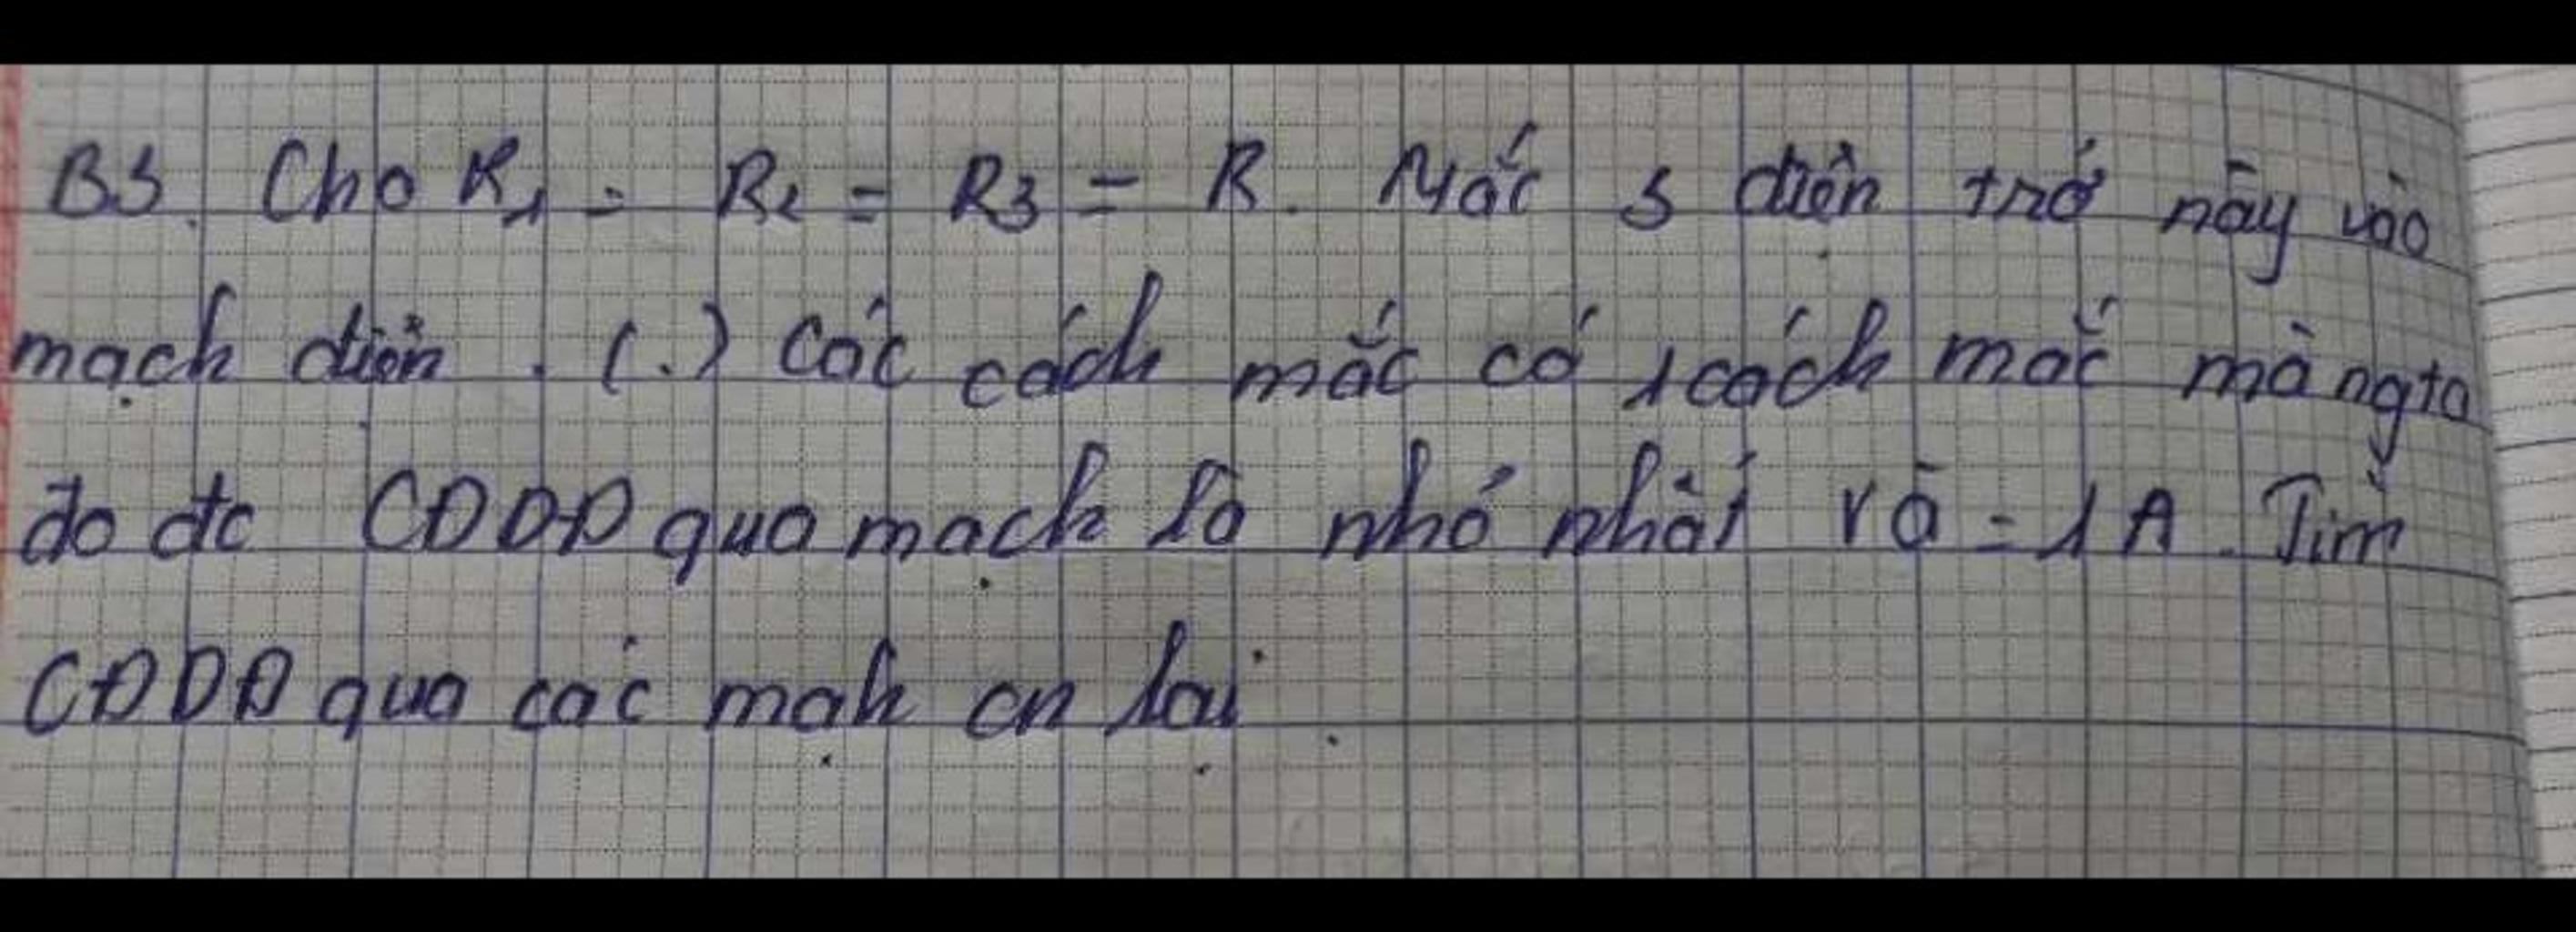 B3. Cho R1 = R2 = R3 = R. Mắc 3 điện trở này vào
mạch điện. (.) Các cách mắc có 1 cách mắc mà ngta
đo đc CĐDĐ qua mạch là nhỏ nhất và = 1A. Tìm
CĐDĐ qua các mạh cn lại.